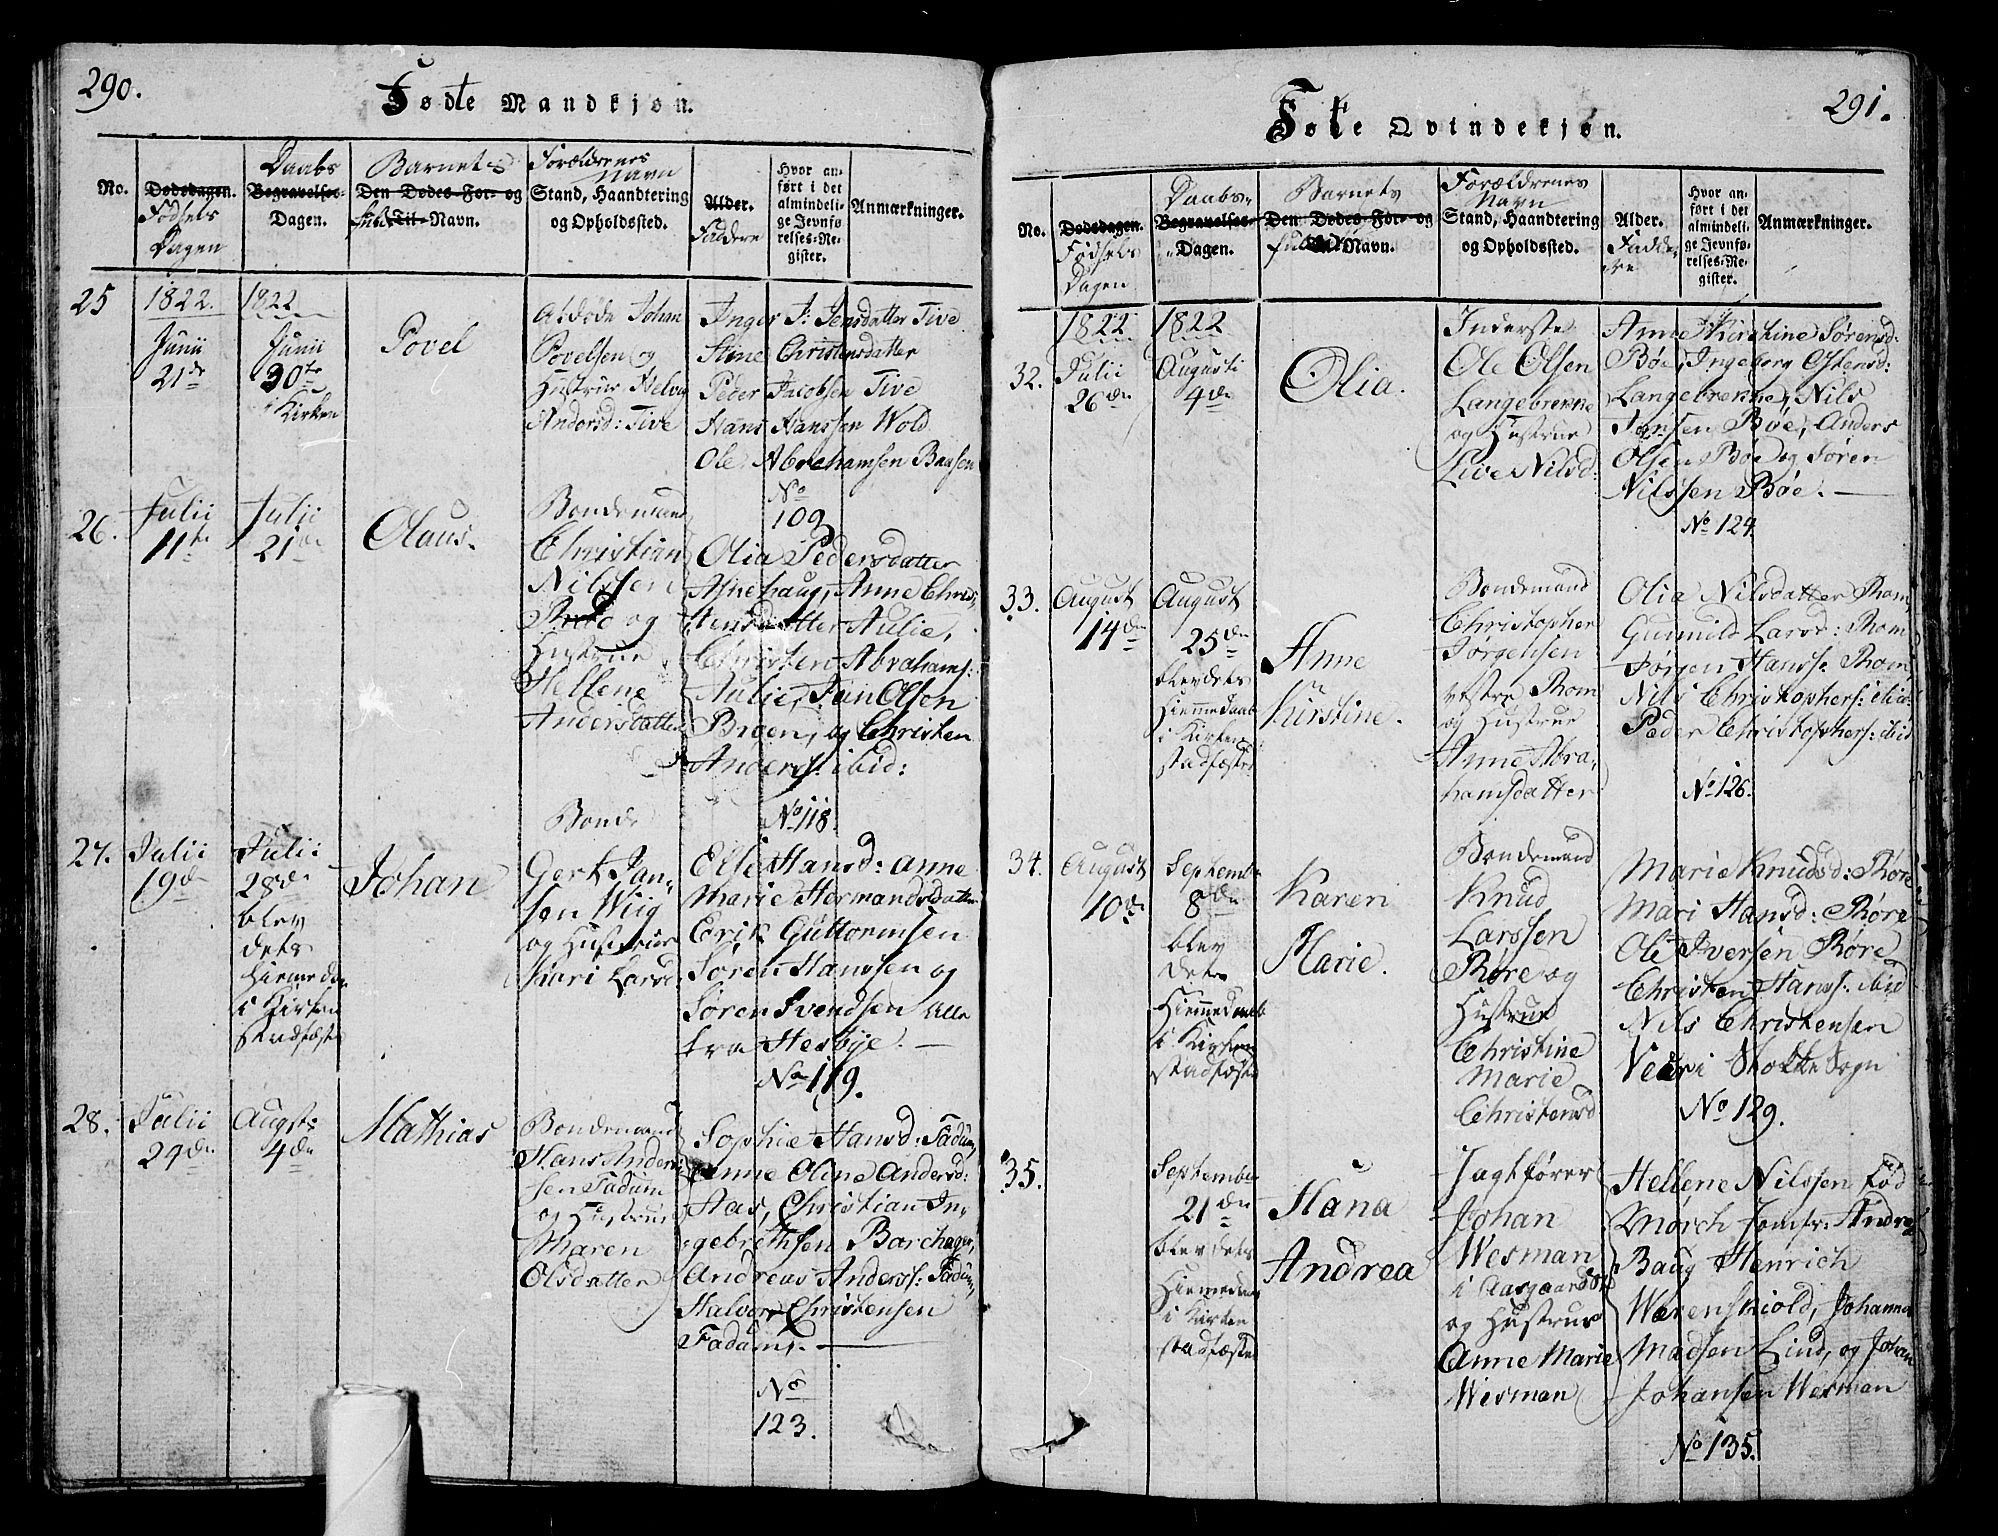 290.
Fødte Mandkjøn.
No.
Dødsdagen.
Fødsels
Dagen
Daabs
Begravelses-
Dagen.
Barnets
Den Dødes For- og
fulde Til-Navn.
Forældrenes
Navn
Stand, Haandtering
og Opholdssted.
Alder.
Faddere
Hvor an-
ført i det
almindeli-
ge Jevnfø-
relses-Re-
gister.
Anmærkninger.
25
1822.
Junii
21de
1822
Junii
30te
i Kirken
Povel
Afdøde Johan
Povelsen og
Hustrue Helvig
Andersd: Tive
Inger J: Jensdatter Tive
Stine Christensdatter
Peder Jacobsen Tive
Hans Hanssen Wold
Ole Abrahamsen Baasen
No
109
26.
Julii
11te
Julii
21de
Olaus.
Bondemand
Christian
Nilssen
og
Hustrue
Hellene
Andersdatter
Olia Pedersdatter
Asnehaug, Anne Chris-
tensdatter Aulie,
Christen Abrahams:
Aulie, Jan Olsen
Broen, og Christen
Anders: ibid:
No 118.
27.
Julii
19de
Julii
28de
blev
dets
Hiemmedaab
i Kirken
stadfæstet
Johan
Bonde
Gert Jan-
sen Wiig
og Hustrue
Kari Larsd:
Else Hansd: Anne
Marie Hermandsdatter
Erik Guttormsen
Søren Hanssen og
Søren Svendsen alle
fra Hesbye. —
No 119.
28.
Julii
29de
Augst:
4de
Mathias
Bondemand
Hans Ander-
sen Fadum
og Hustrue
Maren
Olsdatter
Sophie Hansd: Fadum,
Anne Oline Andersd:
Aas, Christian In-
gebrethsen Barchager,
Andreas Anderss: Fadum,
Halvor Christensen
Fadum. —
No
123.
291.
Føte Qvindekjøn.
No.
Dødsdagen.
Fødsels
Dagen
Daabs-
Begravelses-
Dagen.
Barnets
Den Dødes For- og
fulde Til-Navn.
Forældrenes
Navn
Stand, Haandtering
og Opholdssted.
Alder.
Fadde-
re
Hvor an-
ført i det
almindeli-
ge Jevnfø-
relses-Re-
gister.
Anmærkninger.
32.
1822
Julii
26de
1822
Augusti
4de
Olia.
Inderste
Ole Olsen
Langebrekke
og Hustrue
Live Nilsd:
Anne Kirstine Sørensd:
Bøe, Ingeborg Ostensd:
Langebrekke, Nils
Jansen Bøe, Anders
Olsen Bøe og Søren
Nilssen Bøe. —
No 124.
33.
August
14de
August
25de
blev dets
Hiemmedaab
i Kirken
stadfæstet
Anne
Kirstine.
Bondemand
Christopher
Jørgensen
vestre Rom
og Hustrue
Anne Abra-
hamsdatter
Olia Nilsdatter Rom,
Gunnild Larsd: Rom
Jørgen Hanss: Rom,
Nils Christophers: ibid:
Peder Christophers: ibid
No 126.
34.
August
10de
September
8de
blev
dets
Hiemmedaab
i Kirken
stadfæstet
Karen
Marie.
Bondemand
Knud
Larssen
Røre og
Hustrue
Christine
Marie
Christensd
Marie Knudsd: Røre
Mari Hansd: Røre
Ole Iversen Røre
Christen Hanss: ibid
Nils Christensen
Veari Stokke Sogn
No 129.
35.
September
21de
blev dets
Hiemmedaab
i Kirken
stadfæstet
Hana
Andrea
Jagtfører
Johan
Wesman
i Aasgaard
og Hustrue
Anne Marie
Wesman
Hellene Nilssen fød
Mørch Jomfr: Andrea
Baug Henrich
Wærenskiold, Johanna
Madsen Lind, og Johan
Johansen Wesman
No 135.